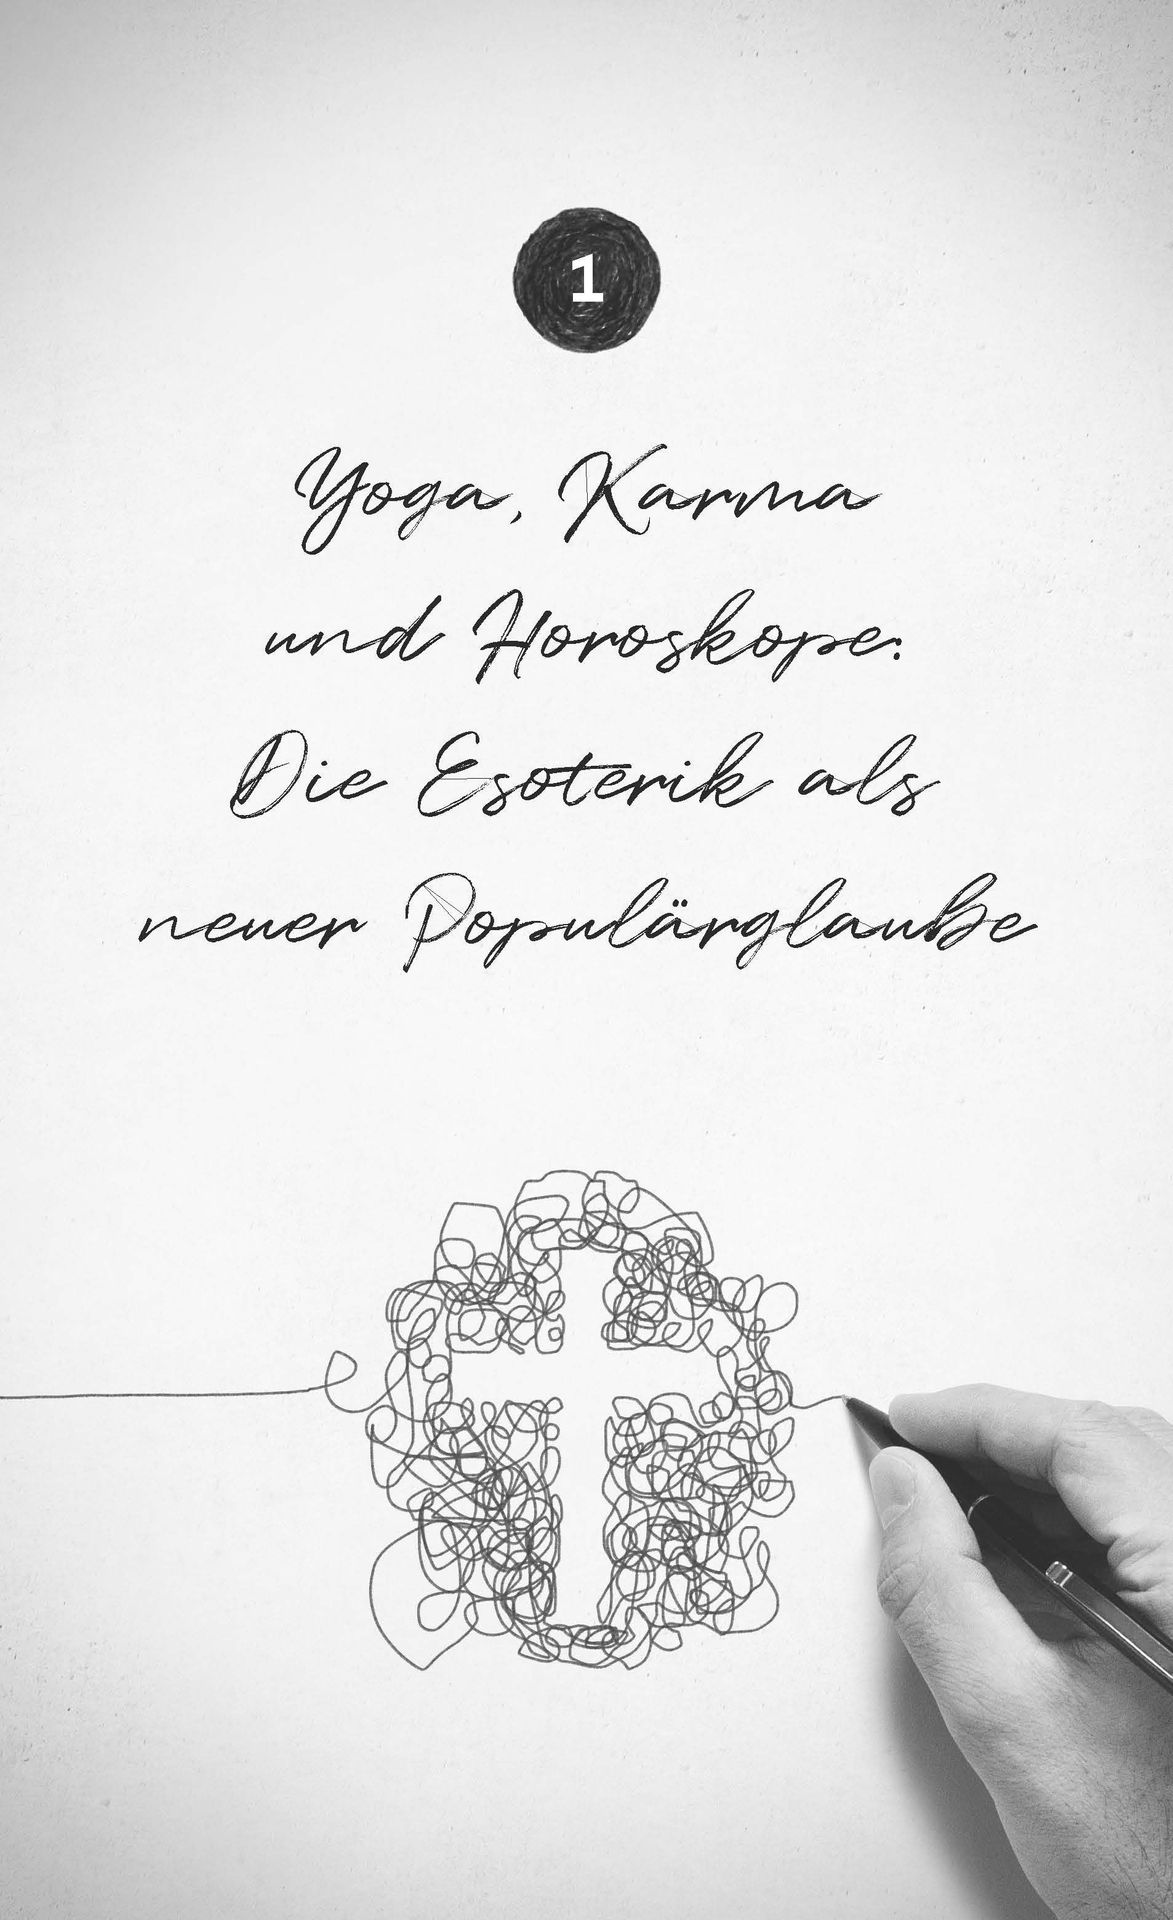 1
Yoga, Karma
und Horoskope:
Die Esoterik als
neuer Populärglaube